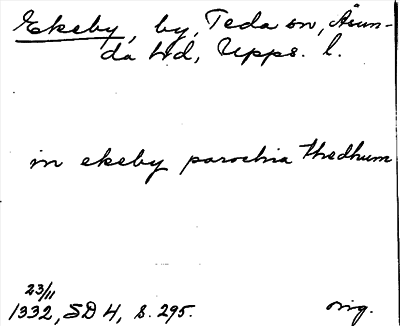 Ekeby, by, Teda sn, Åsun-
da hd, Upps. l.
in ekeby parochia thedhum
23/11
1332, SD 4, s. 295. orig.